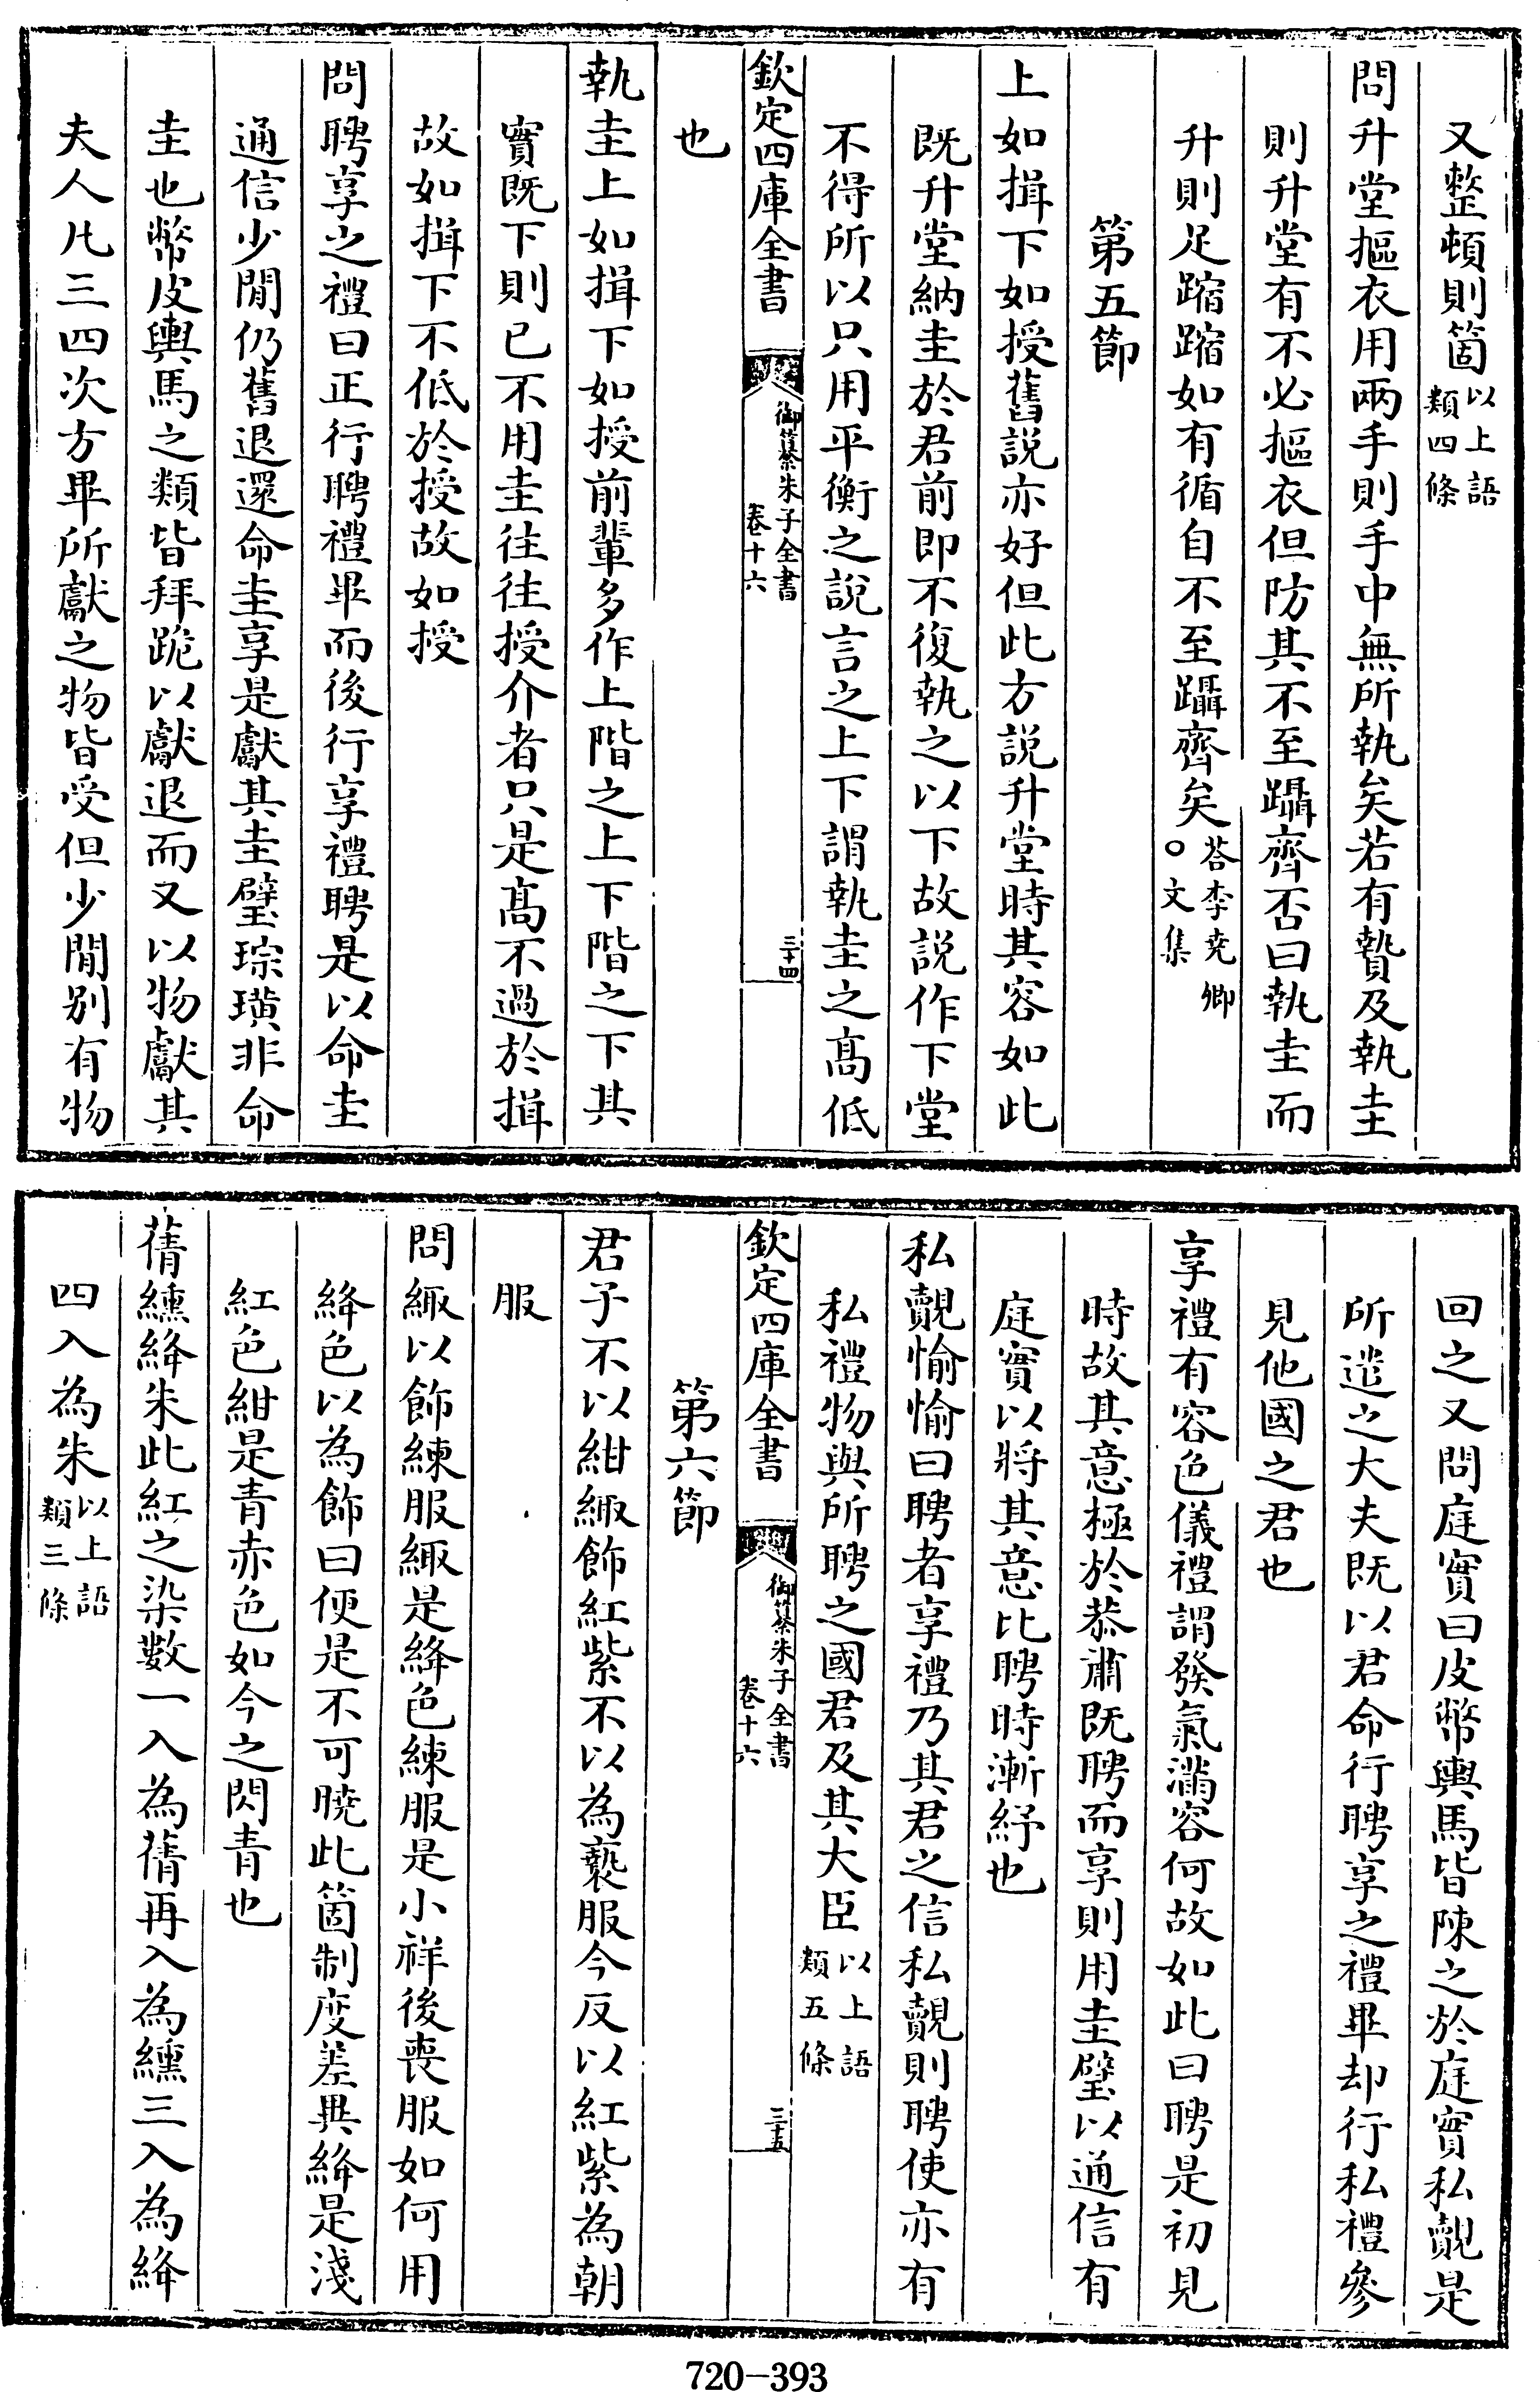 又整頓則箇以上語類四條
問升堂摳衣用兩手則手中無所執矣若有贄及執圭
則升堂有不必摳衣但防其不至躡齊否曰執圭而
升則足蹜蹜如有循自不至躡齊矣荅李堯卿○文集
第五節
上如揖下如授舊説亦好但此方説升堂時其容如此
既升堂納圭於君前即不復執之以下故説作下堂
不得所以只用平衡之說言之上下謂執圭之髙低
欽定四庫全書 御纂朱子全書 卷十六 三十四
也
執圭上如揖下如授前輩多作上階之上下階之下其
實既下則已不用圭往往授介者只是髙不過於揖
故如揖下不低於授故如授
問聘享之禮曰正行聘禮畢而後行享禮聘是以命圭
通信少閒仍舊退還命圭享是獻其圭璧琮璜非命
圭也幣皮輿馬之類皆拜跪以獻退而又以物獻其
夫人凡三四次方畢所獻之物皆受但少閒别有物
回之又問庭實曰皮幣輿馬皆陳之於庭實私覿是
所遣之大夫既以君命行聘享之禮畢却行私禮參
見他國之君也
享禮有容色儀禮謂發氣滿容何故如此曰聘是初見
時故其意極於恭肅既聘而享則用圭璧以通信有
庭實以將其意比聘時漸紓也
私覿愉愉曰聘者享禮乃其君之信私覿則聘使亦有
私禮物與所聘之國君及其大臣以上語類五條
欽定四庫全書 御纂朱子全書 卷十六 三十五
第六節
君子不以紺緅飾紅紫不以為褻服今反以紅紫為朝
服
問緅以飾練服緅是絳色練服是小祥後喪服如何用
絳色以為飾曰便是不可曉此箇制度差異絳是淺
紅色紺是青赤色如今之閃青也
蒨纁絳朱此紅之染數一入為蒨再入為纁三入為絳
四入為朱以上語類三條
720-393